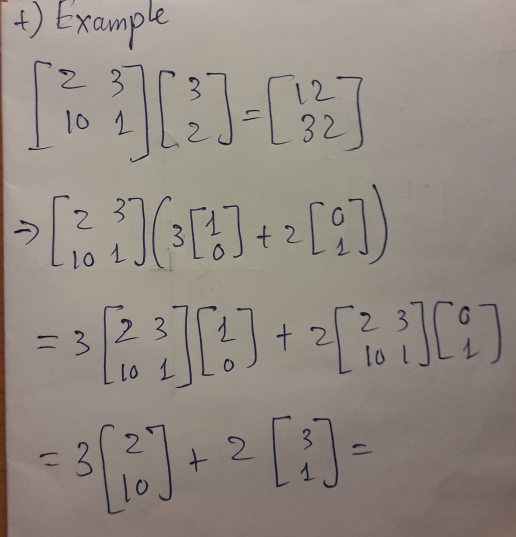 +) Example
[2 3; 10 1] [3; 2] = [12; 32]
⇒ [2 3; 10 1] (3 [1; 0] + 2 [0; 1])
= 3 [2 3; 10 1] [1; 0] + 2 [2 3; 10 1] [0; 1]
= 3 [2; 10] + 2 [3; 1] =